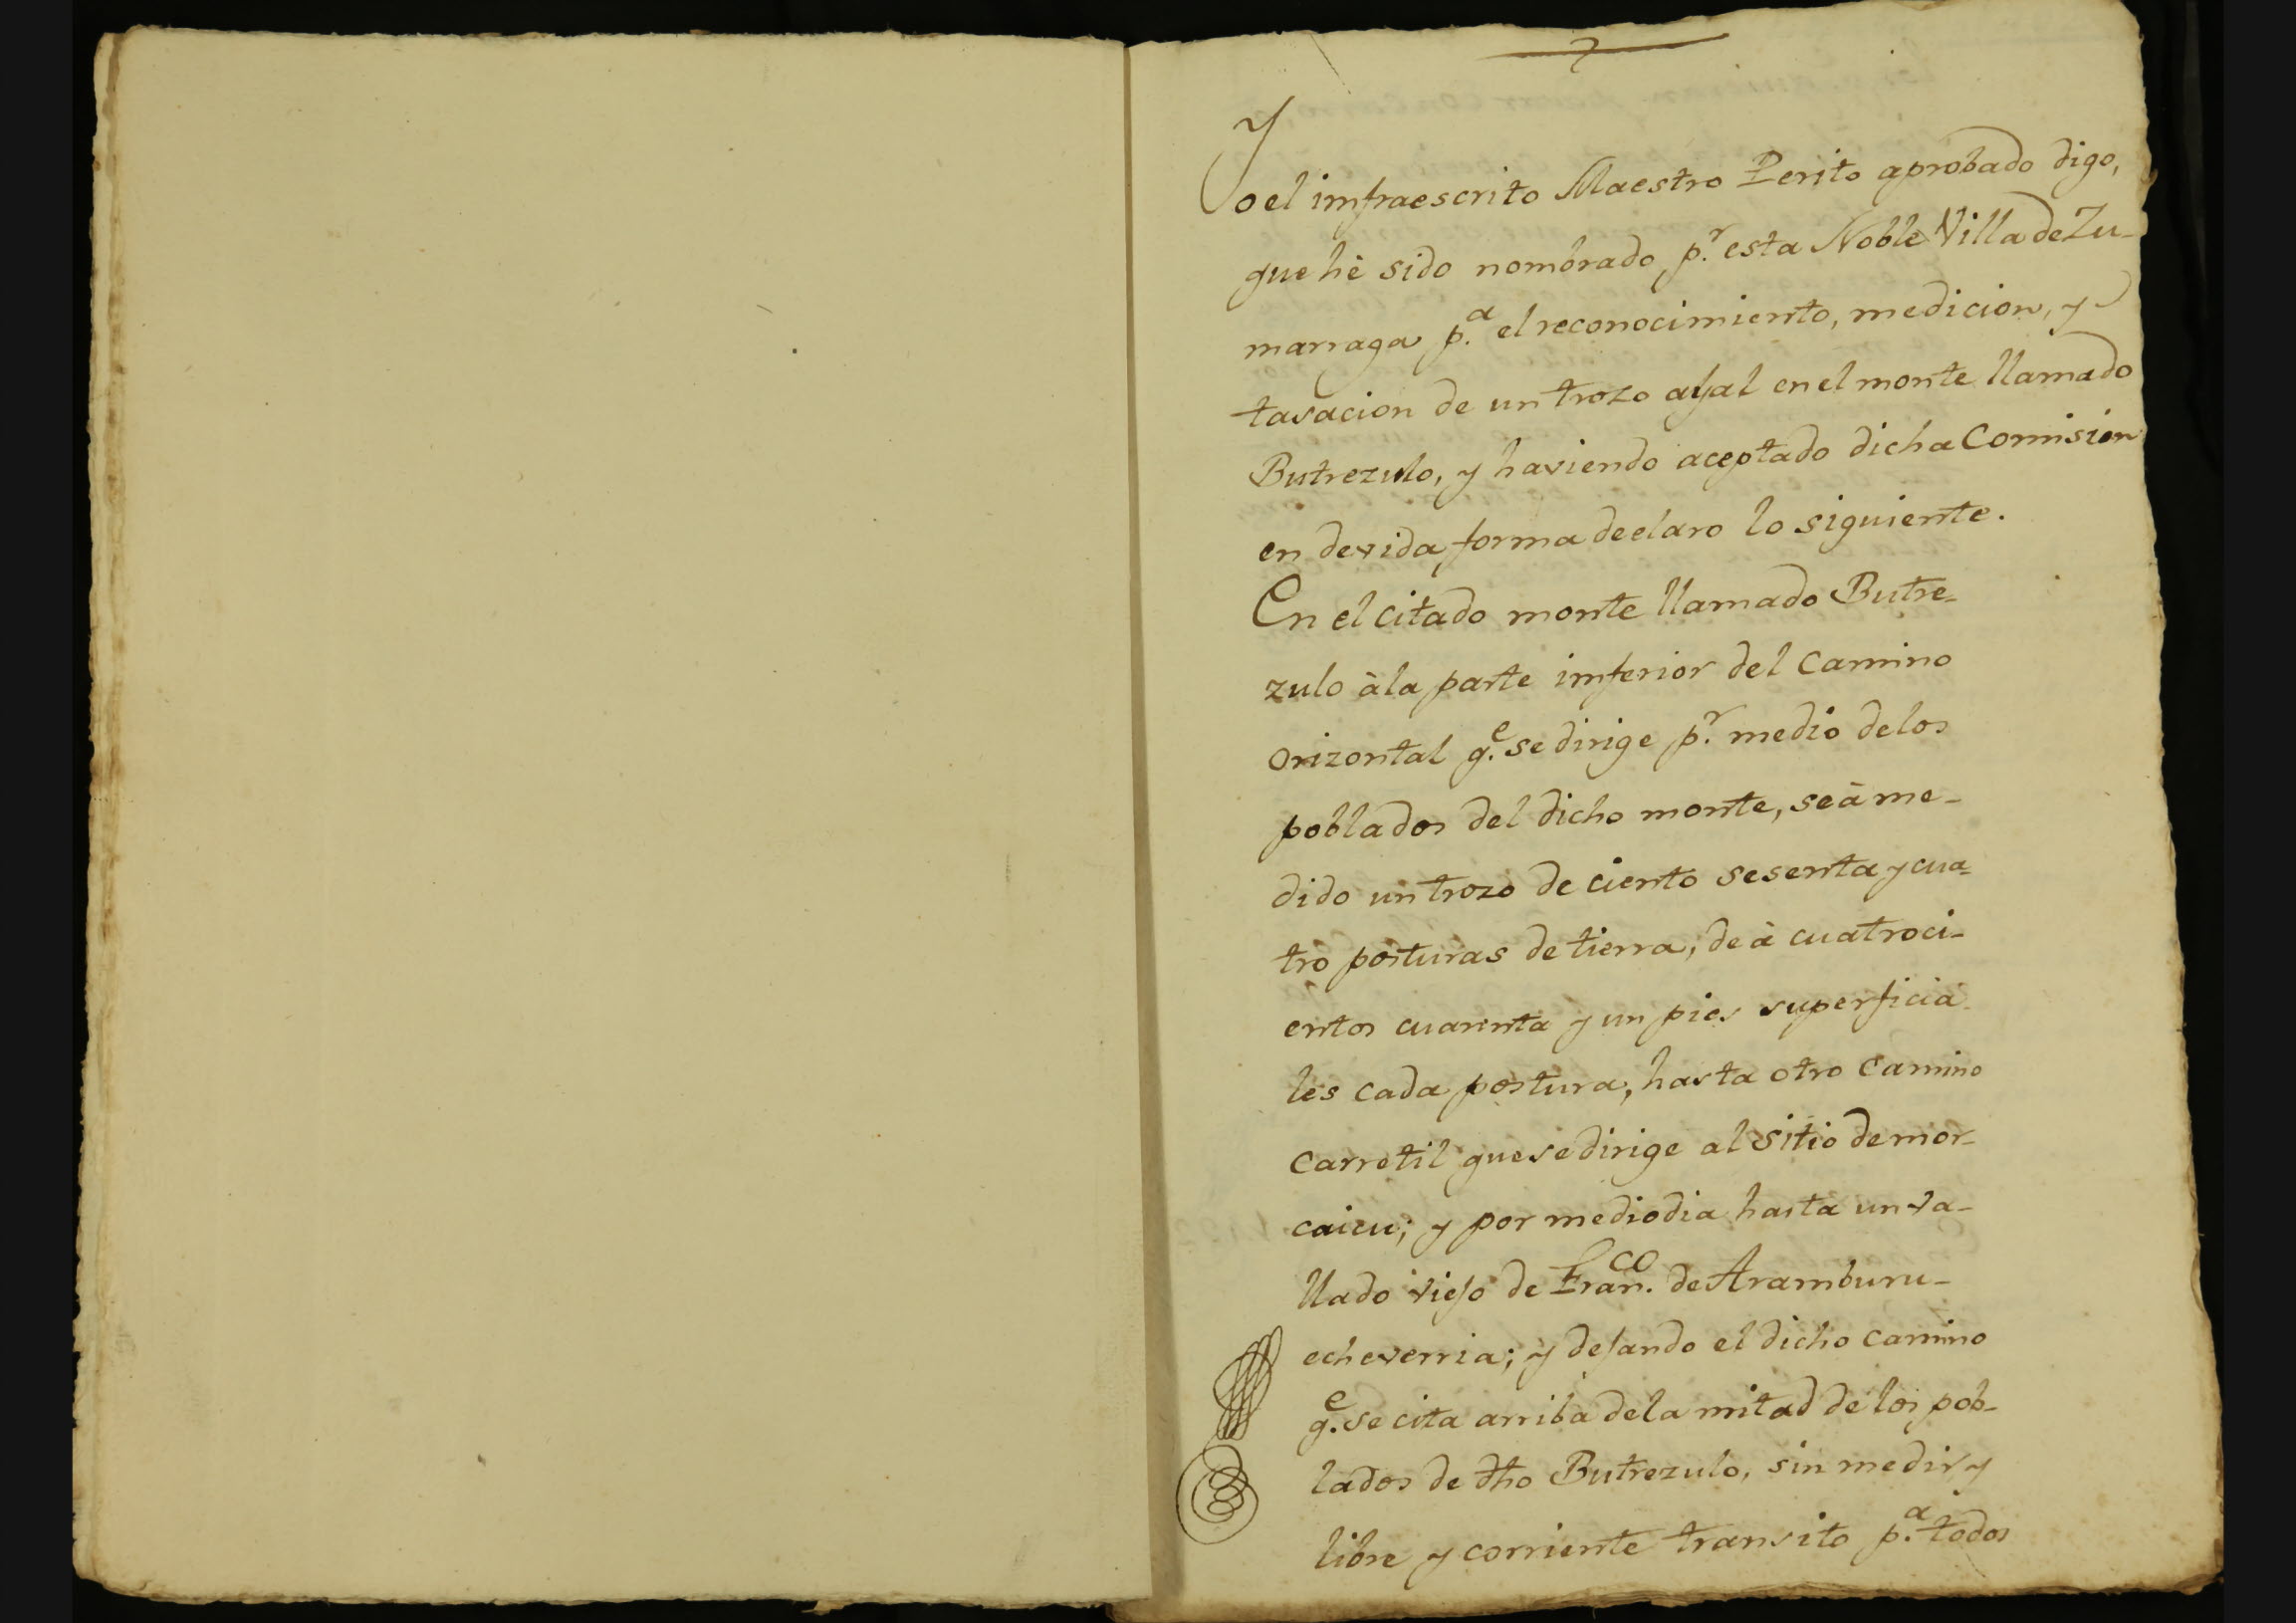 Yo el imfraescrito Maestro Perito aprobado digo,
que hè sido nombrado p.r esta Noble Villa de Zu-
marraga p.a el reconocimiento, medicion, y
tasacion de un trozo ayal en el monte llamado
Butrezulo, y haviendo aceptado dicha Comision
en devida forma declaro lo siguiente.
En el citado monte llamado Butre-
zulo àla parte imferior del Camino
Orizontal q.e se dirige p.r medio delos
poblados del dicho monte, se à me-
dido un trozo de ciento sesenta y cua-
tro posturas de tierra, de à cuatroci-
entos cuarenta y un pies superficia
les cada postura, hasta otro Camino
Carretil que se dirige al Sitio de mor-
caicu; y por mediodia hasta un va-
llado viejo de Fran.co de Aramburu-
echeverria; y dejando el dicho camino
q.e se cita arriba dela mitad de los pob-
lados de dho Butrezulo, sin medir y
libre y corriente transito p.a todos